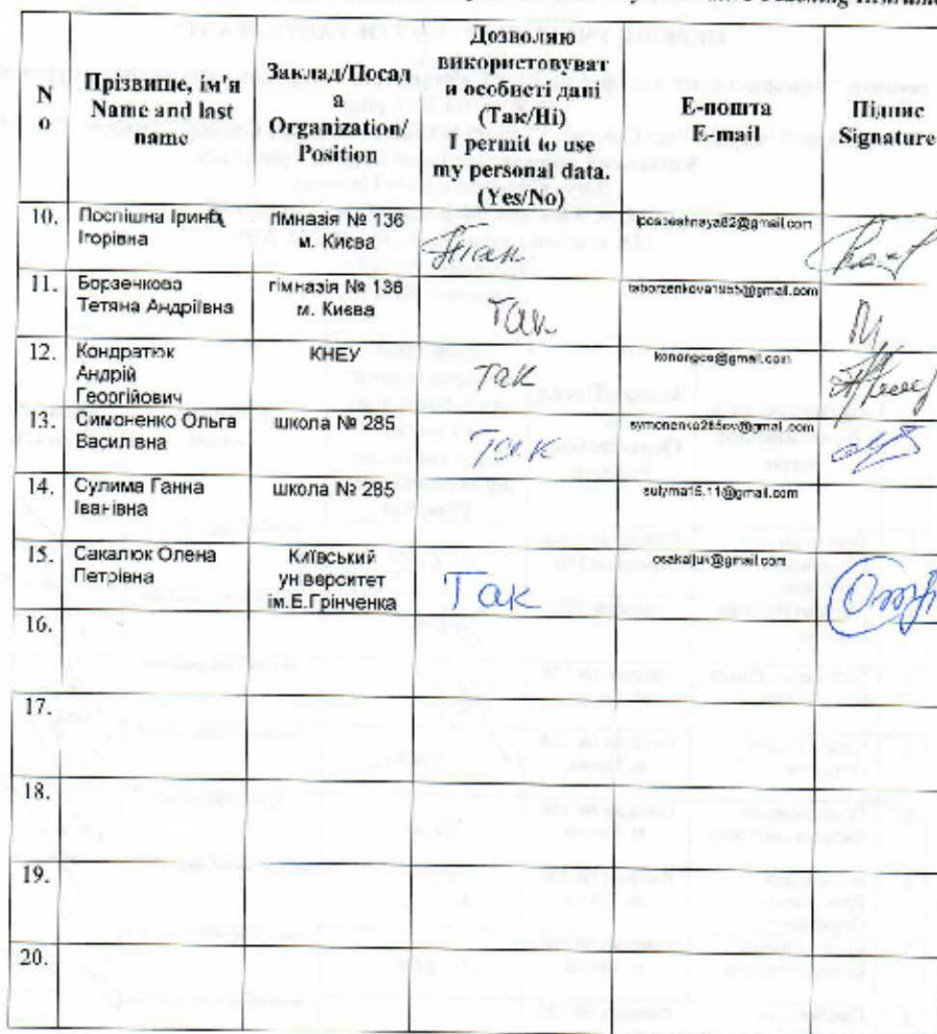 Teaching
N
o
Прізвище, ім'я
Name and last
name
Заклад/Посад
а
Organization/
Position
Дозволяю
використовуват
и особисті дані
(Так/Ні)
I permit to use
my personal data.
(Yes/No)
Е-пошта
E-mail
Підпис
Signature
10.
Поспішна Ірина
Ігорівна
гімназія № 136
м. Києва
Так
11.
Борзенкова
Тетяна Андріївна
гімназія № 136
м. Києва
Так
taborzenkova1955@gmail.com
12.
Кондратюк
Андрій
Георгійович
КНЕУ
Так
konongeo@gmail.com
13.
Симоненко Ольга
Василівна
школа № 285
Так
symonenko285ov@gmail.com
14.
Сулима Ганна
Іванівна
школа № 285
sulyma15.11@gmail.com
15.
Сакалюк Олена
Петрівна
Київський
університет
ім.Б.Грінченка
Так
osakaljuk@gmail.com
16.
17.
18.
19.
20.